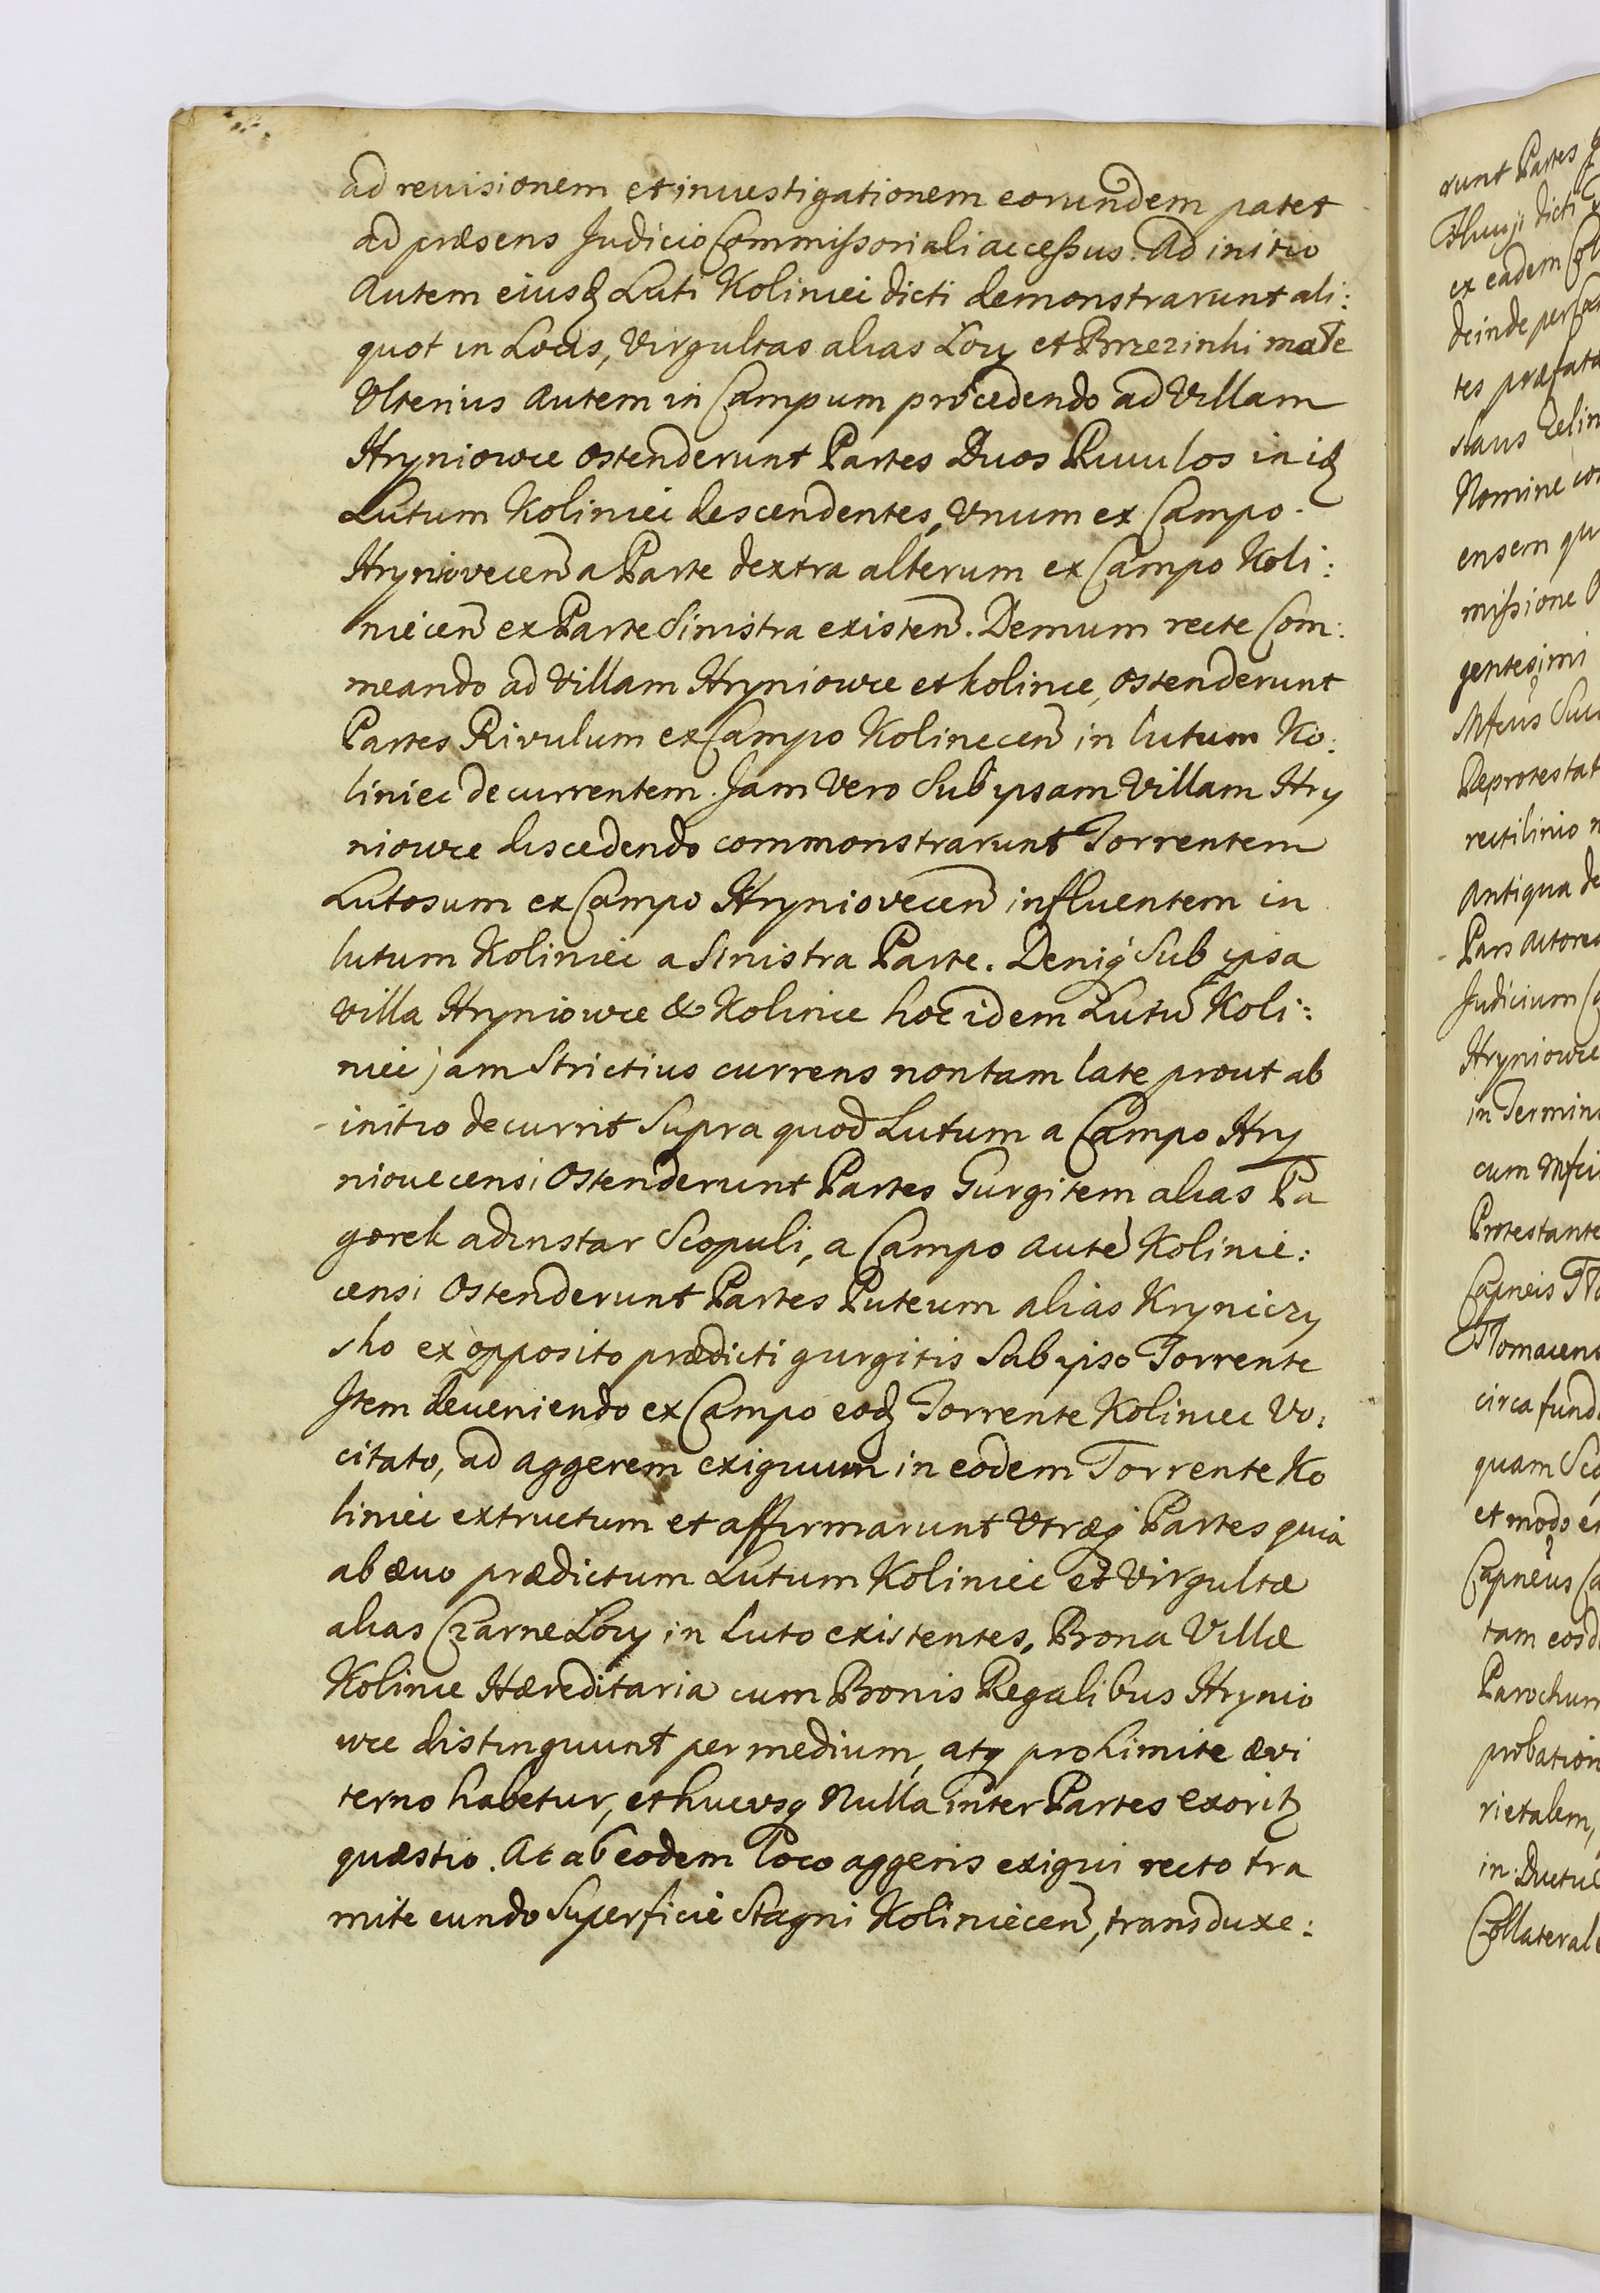 ad reuisionem et inuestigationem eorundem patet
ad præsens Judicio Commissoriali accessus. Ad initio
Autem eiusq Luti Koliniec dicti demonstrarunt ali:
quot in Locis, Virgultas alias Lozy et Brzezinki małe
Vlterius Autem in Campum procedendo ad Villam
Hryniowce ostenderunt Partes Duos Riuulos in iq
Lutum Koliniec descendentes, Vnum ex Campo
Hryniovecen a Parte dextra alterum ex Campo Koli:
niecen ex Parte Sinistra existen. Demum recte Com:
meando ad Villam Hryniowce et Kolince, ostenderunt
Partes Rivulum ex Campo Kolinecen in lutum Ko:
liniec decurrentem. Jam Vero Sub ipsam Villam Hry
niowce discedendo commonstrarunt Torrentem
Lutosum ex Campo Hryniovecen influentem in
lutum Koliniec a Sinistra Parte. Deniq Sub ipsa
villa Hryniowce & Kolince hoc idem Lutu Koli:
niec jam Strictius currens non tam late prout ab
initio decurrit Supra quod Lutum a Campo Hry
niouecensi Ostenderunt Partes Gurgitem alias Pa
gorek ad instar Scopuli, a Campo aute Kolinie:
censi Ostenderunt Partes Puteum alias Kryniczy
sko ex opposito prædicti gurgitis Sub ipso Torrente
Item deueniendo ex Campo eoq Torrente Koliniec Vo:
citato, ad aggerem exiguum in eodem Torrente Ko
liniec extructum et affirmarunt Vtræq Partes quia
ab æuo prædictum Lutum Koliniec et Virgultæ
alias Czarne Lozy in luto existentes, Bona Villæ
Kolince Hæreditaria cum Bonis Regalibus Hrynio
wce distinguunt per medium, atq pro Limite ævi
terno habetur, et hucusq Nulla inter Partes exoritz
quæstio. At ab eodem loco aggeris exigui recto tra
mite eundo Superficie Stagni Koliniecen, transduxe:
runt Partes
Fluuii dicti
ex eadem
deinde per
tes præfata
slaus
Nomine
ensem
missione
gentesimi
Reprotestat
rectilinio
Antiqua de
Pars Actorea
Judicium
Hryniowce
in Termin
cum
Protestante
Capneis
circa fund
quam
et modo
Capneus
tam eosd
Parochum
probation
rietalem,
in Ductu
Collateral